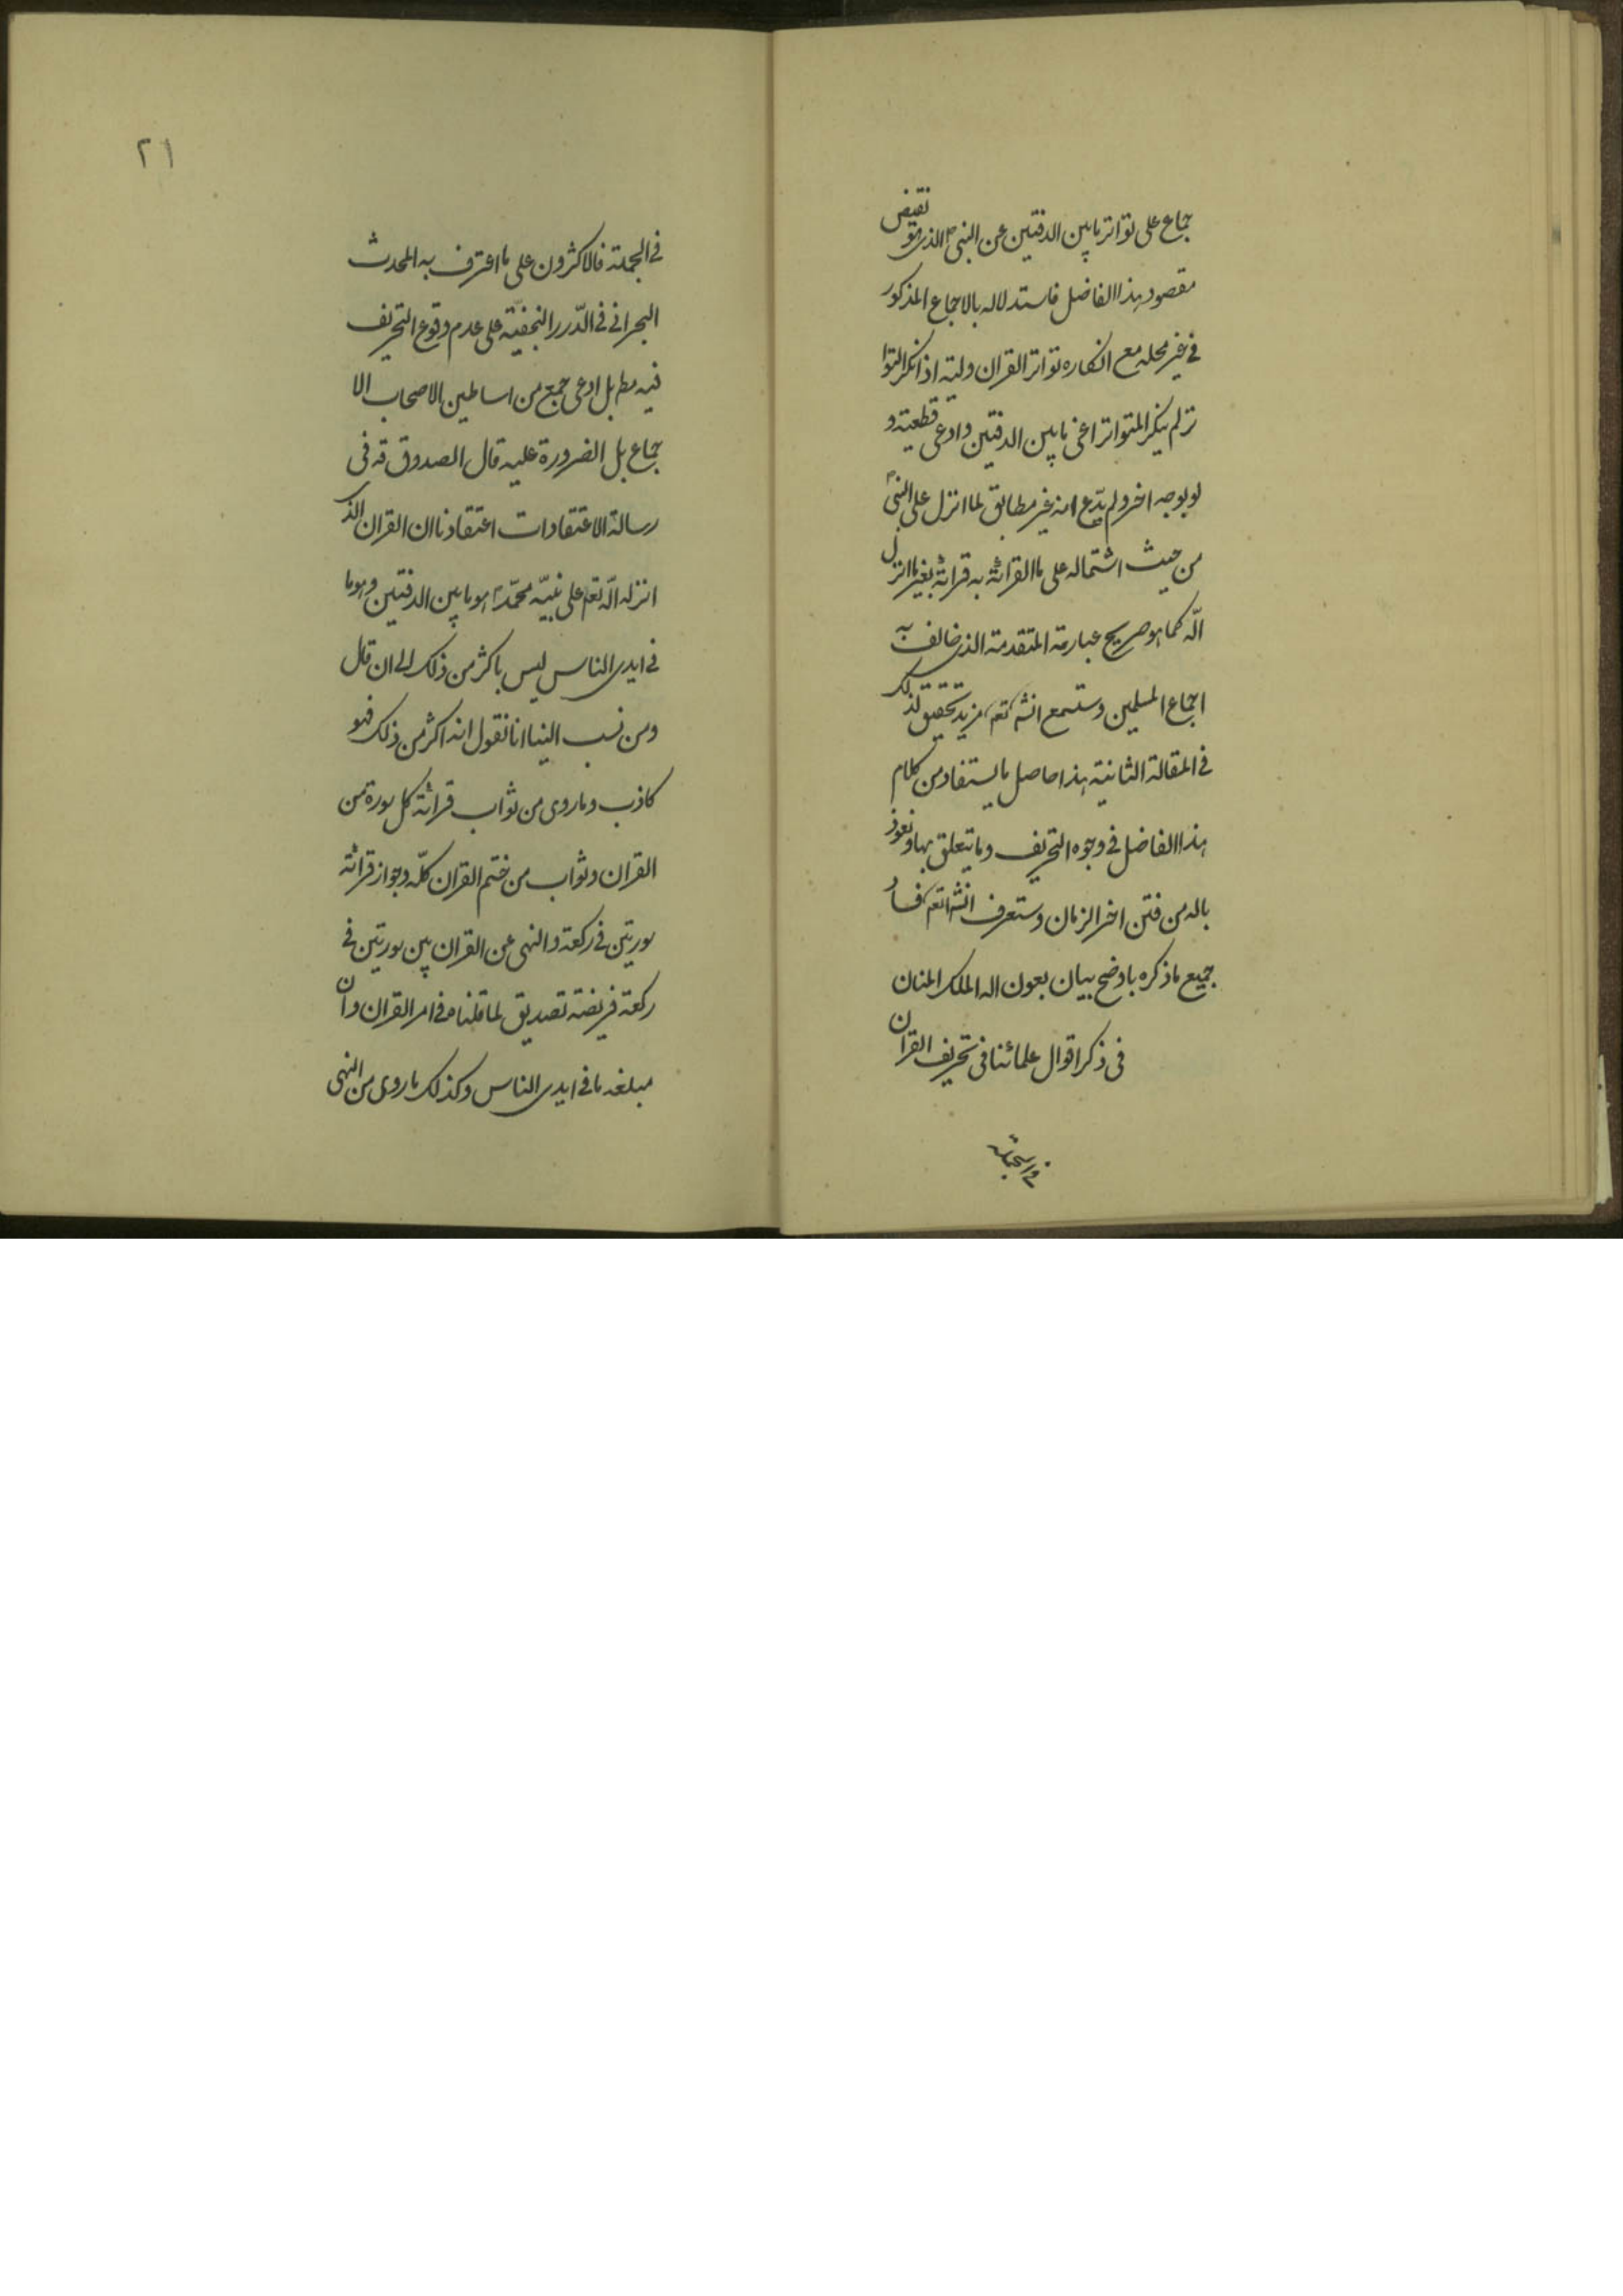 جماع على تواتر ما بين الدفتين عن النبي ص الذي هو نقيض
مقصود هذا الفاضل فاستدلاله بالاجماع المذكور
في غير محله مع انكاره تواتر القران وليته اذ انكر التوا
تر لم ينكر المتواتر اعني ما بين الدفتين وادعى قطعيته و
لو بوجه اخر ولم يدّع انه غير مطابق لما انزل على النبي ص
من حيث اشتماله على ما القرائة به قرائة بغير ما انزل
الله كما هو صريح عبارته المتقدمة الذي خالف به
اجماع المسلمين وستسمع انشہ تعم مزيد تحقيق لذلك
في المقالة الثانية هذا حاصل ما يستفاد من كلام
هذا الفاضل في وجوه التحريف وما يتعلق بها ونعوذ
بالله من فتن اخر الزمان وستعرف انشہ تعم فساد
جميع ما ذكره باوضح بيان بعون الله الملك المنان
في ذكر اقوال علمائنا في تحريف القران
في الجملة
٢١
في الجملة فالاكثرون على ما اعترف به المحدث
البحراني في الدّرر النجفيّة على عدم وقوع التحريف
فيه مط بل ادعى جمع من اساطين الاصحاب الا
جماع بل الضرورة عليه قال الصدوق قه في
رسالة الاعتقادات اعتقادنا ان القران الذ
انزله الله تعم على نبيّه محمّد ص هو ما بين الدفتين وهو ما
في ايدي الناس ليس باكثر من ذلك الى ان قال
ومن نسب الينا انا نقول انه اكثر من ذلك فهو
كاذب وما روى من ثواب قرائة كل سورة من
القران وثواب من ختم القران كلّه وجواز قرائة
سورتين في ركعة والنهى عن القران بين سورتين في
ركعة فريضة تصديق لما قلناه في امر القران وان
مبلغه ما في ايدي الناس وكذلك ما روى من النهى